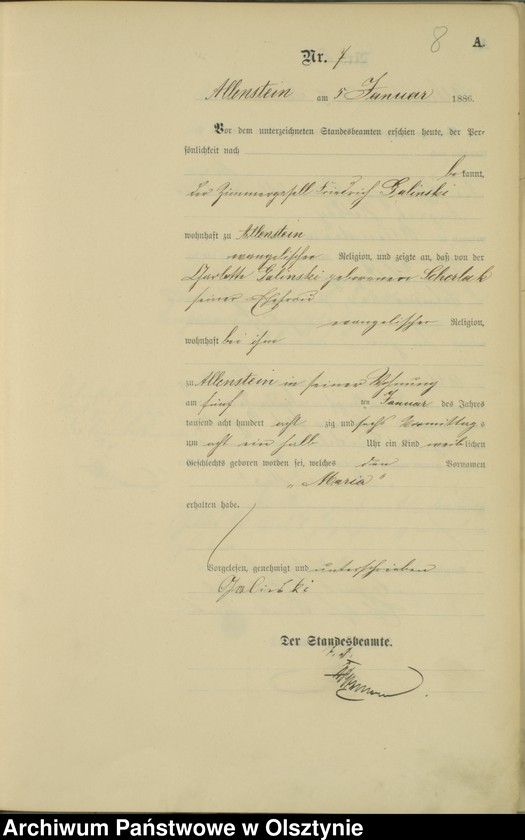 8
A.
Nr. 7
Allenstein am 5 Januar 1886.
Vor dem unterzeichneten Standesbeamten erschien heute, der Per-
sönlichkeit nach
be kannt,
der Zimmergesell Friedrich Galinski
wohnhaft zu Allenstein
evangelischer Religion, und zeigte an, daß von der
Charlotte Galinski geborenen Scherlak
seiner Ehefrau
evangelischer Religion,
wohnhaft bei ihm
zu Allenstein in seiner Wohnung
am fünf ten Januar des Jahres
tausend acht hundert acht zig und sechs Vormittag s
um acht ein halb Uhr ein Kind weib lichen
Geschlechts geboren worden sei, welches den Vornamen
„Maria"
erhalten habe.
Vorgelesen, genehmigt und unterschrieben
Galinski
Der Standesbeamte.
Archiwum Państwowe w Olsztynie